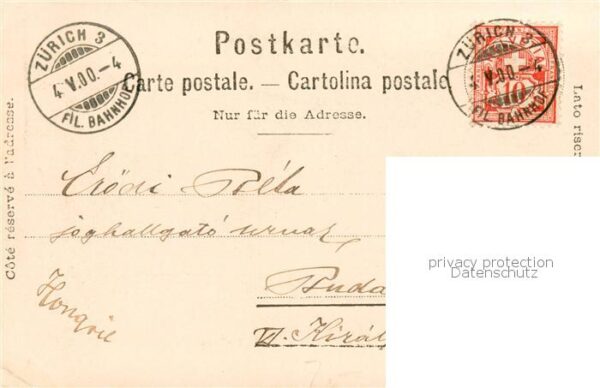 ZÜRICH 3
4.V.00.-4
FIL. BAHNHOF
Postkarte.
Carte postale. — Cartolina postale
Nur für die Adresse.
ZÜRICH 3
V.00.-4
FIL. BAHNHOF
10
Côté réservé à l'adresse.
Lato riser
Erődi Béla
joghallgató urnak
Buda
VI. Király
Hongrie
privacy protection
Datenschutz